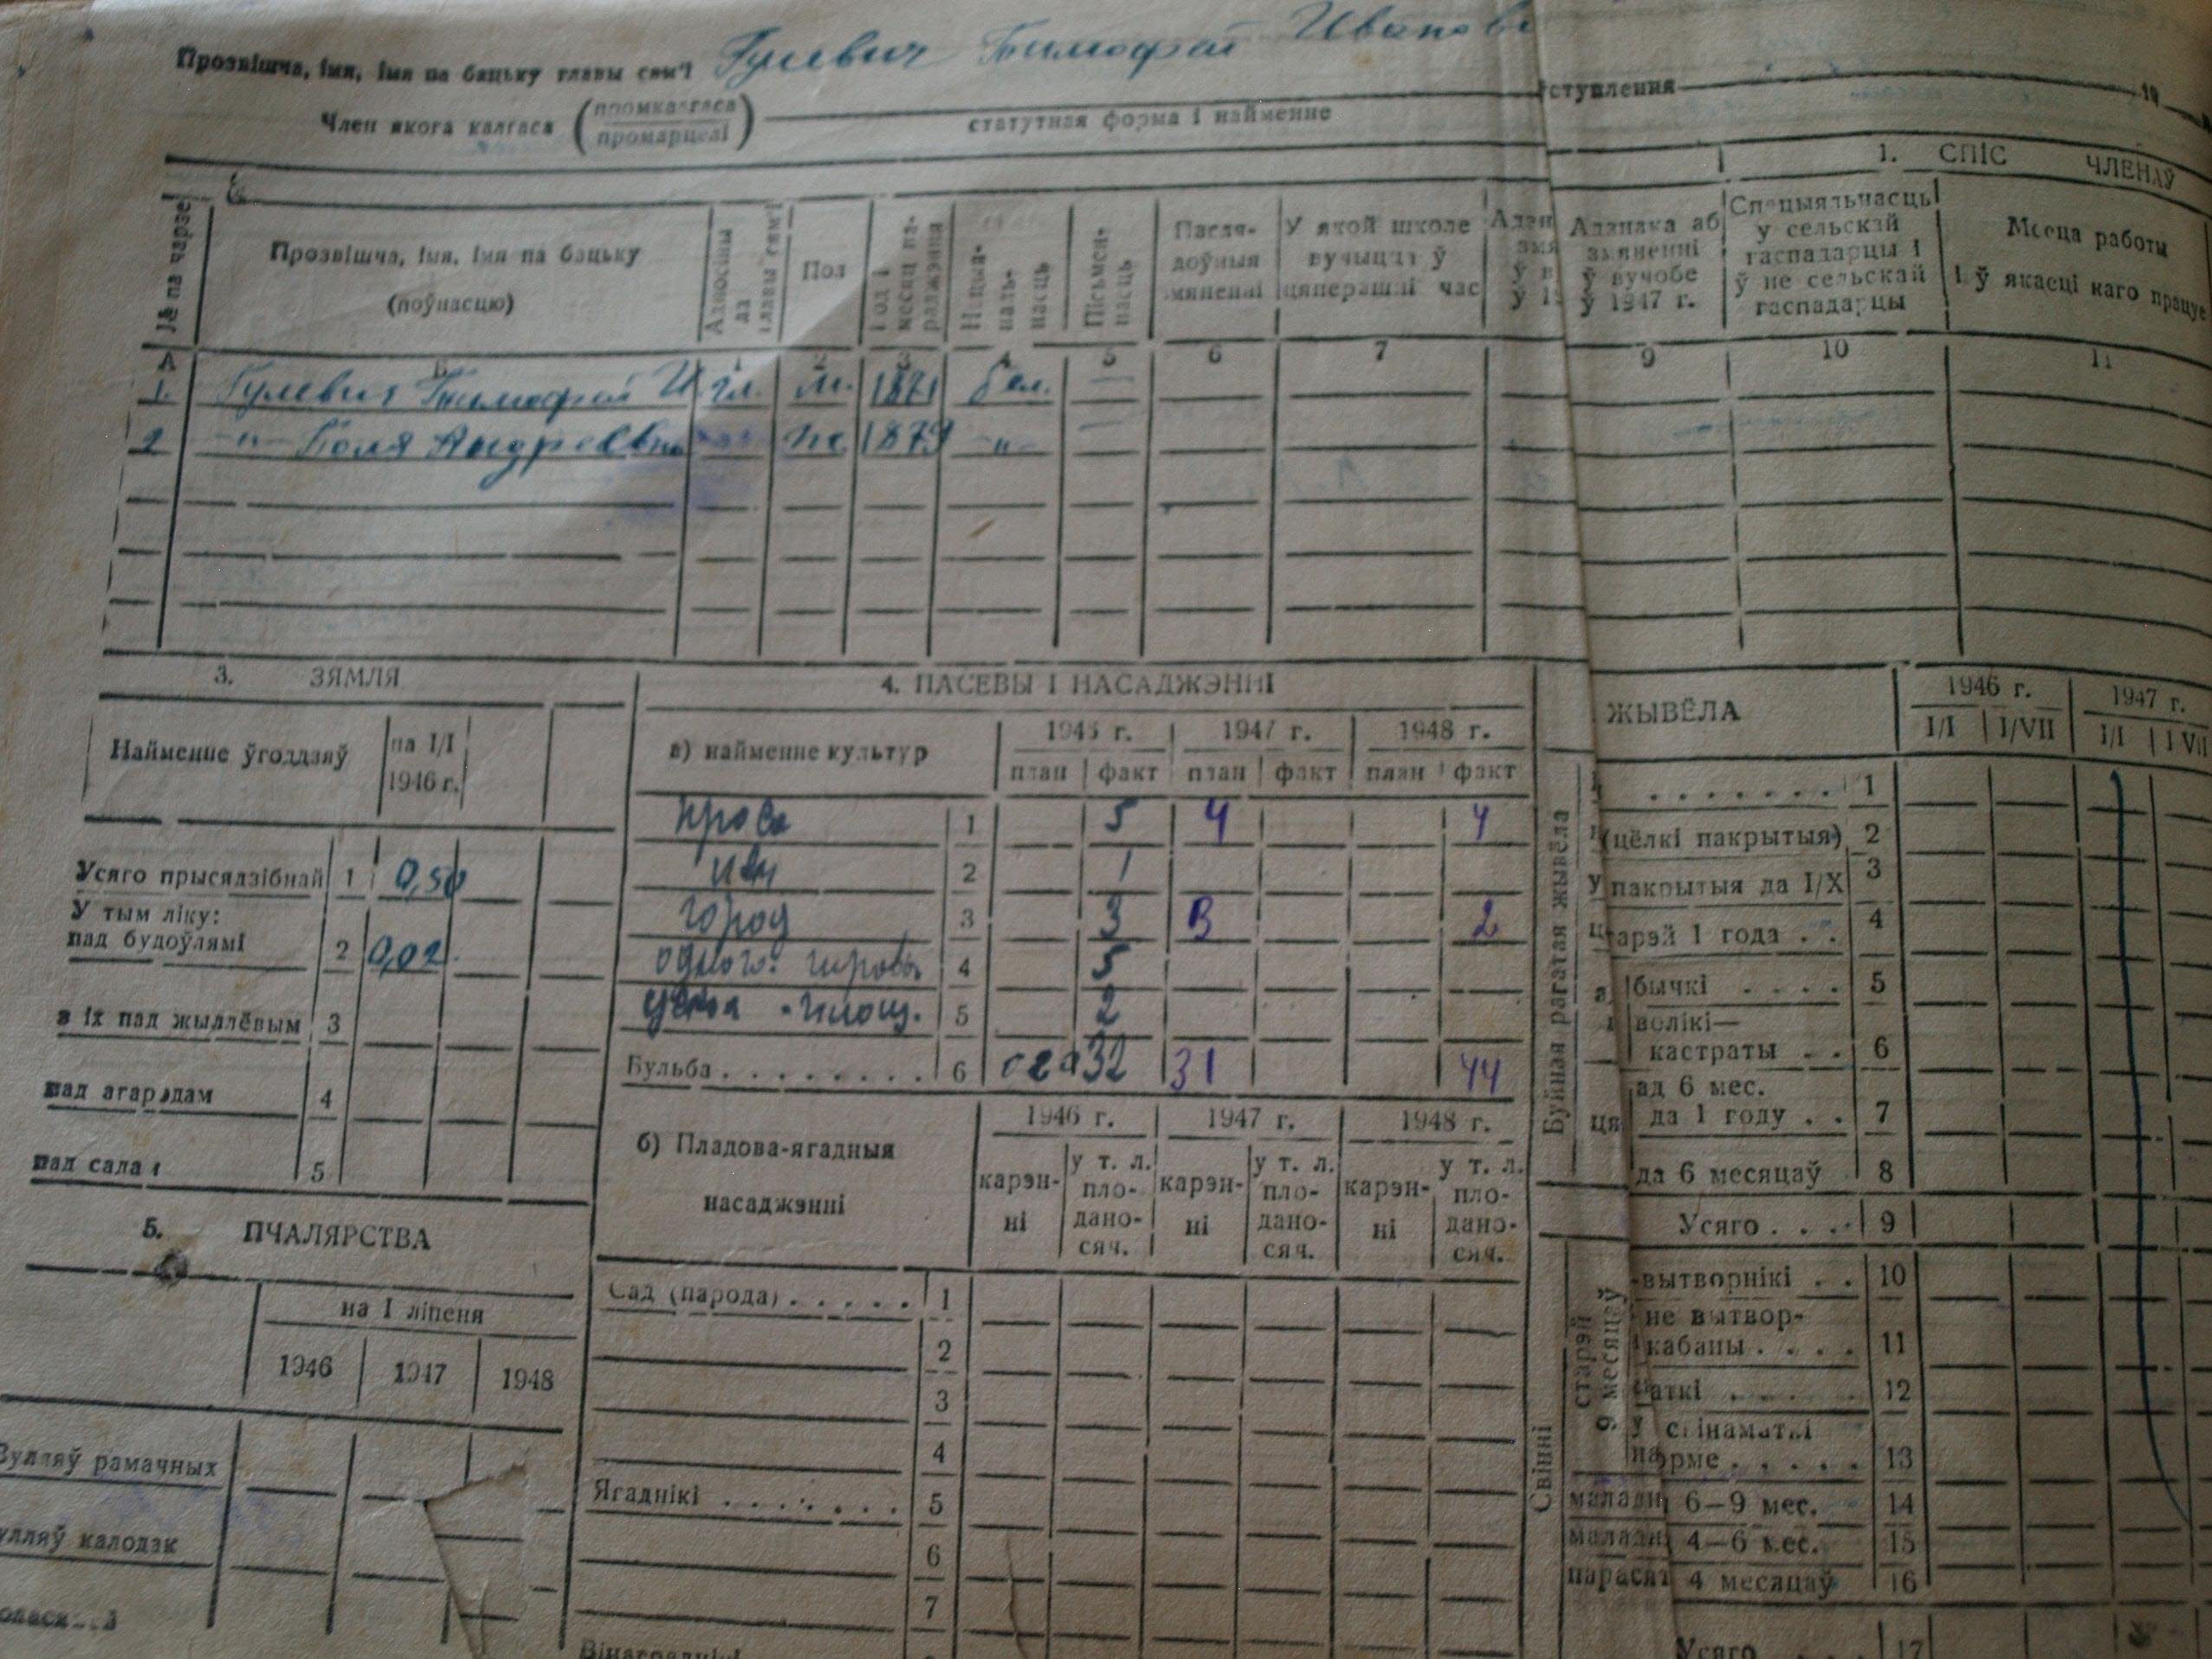 Прозвішча, імя, імя па бацьку главы сям'і Гулевич Тимофей Иванов
Член якога калгаса (промкалгаса промарцелі)
статутная форма і найменне
ступлення 19
1. СПІС ЧЛЕНАЎ
№ па чарзе
Прозвішча, імя, імя па бацьку (поўнасцю)
Адносіны да главы сям'і
Пол
Год і месяц нараджэння
Нацыянальнасць
Пісьменнасць
У якой школе вучыцца ў цяперашні час
Адзнака аб змяненні ў вучобе ў 1947 г.
Спецыяльнасць у сельскай гаспадарцы і ў не сельскай гаспадарцы
Месца работы і ў якасці каго працуе
А Б 1 2 3 4 5 6 7 9 10 11
1. Гулевич Тимофей И. гл. м. 1871 бел. —
2 -"- Андреевна ж 1879 -"- —
3. ЗЯМЛЯ
Найменне ўгоддзяў
на I/I 1946 г.
Усяго прысядзібнай 1 0,50
У тым ліку:
пад будоўлямі 2 0,02
з іх пад жыллёвым 3
пад агародам 4
пад садам 5
4. ПАСЕВЫ І НАСАДЖЭННІ
а) найменне культур
1946 г. 1947 г. 1948 г.
план факт план факт план факт
просо 1 5 4 4
2 1
город 3 3 3 2
4 5
5 2
Бульба 6 32 31 44
б) Пладова-ягадныя насаджэнні
1946 г. 1947 г. 1948 г.
карэнні у т. л. пладаносяч. карэнні у т. л. пладаносяч. карэнні у т. л. пладаносяч.
Сад (парода) . . . . . 1
2
3
4
Ягаднікі . . . . . . . 5
6
7
5. ПЧАЛЯРСТВА
на I ліпеня
1946 1947 1948
Вулляў рамачных
улляў калодак
ЖЫВЁЛА
1946 г. 1947 г.
I/I I/VII I/I I/VII
Буйная рагатая жывёла
. . . . . . . 1
(цёлкі пакрытыя) 2
пакрытыя да I/X 3
тарэй 1 года . . 4
бычкі . . . . 5
волікі—
кастраты . . 6
ад 6 мес.
да 1 году . . 7
да 6 месяцаў 8
Усяго . . . . 9
Свінні
старэй 9 месяцаў
вытворнікі . . 10
не вытвор-
кабаны . . . . 11
маткі . . . . 12
свінаматкі
13
6—9 мес. 14
4—6 мес. 15
парасят 4 месяцаў 16
Усяго 17